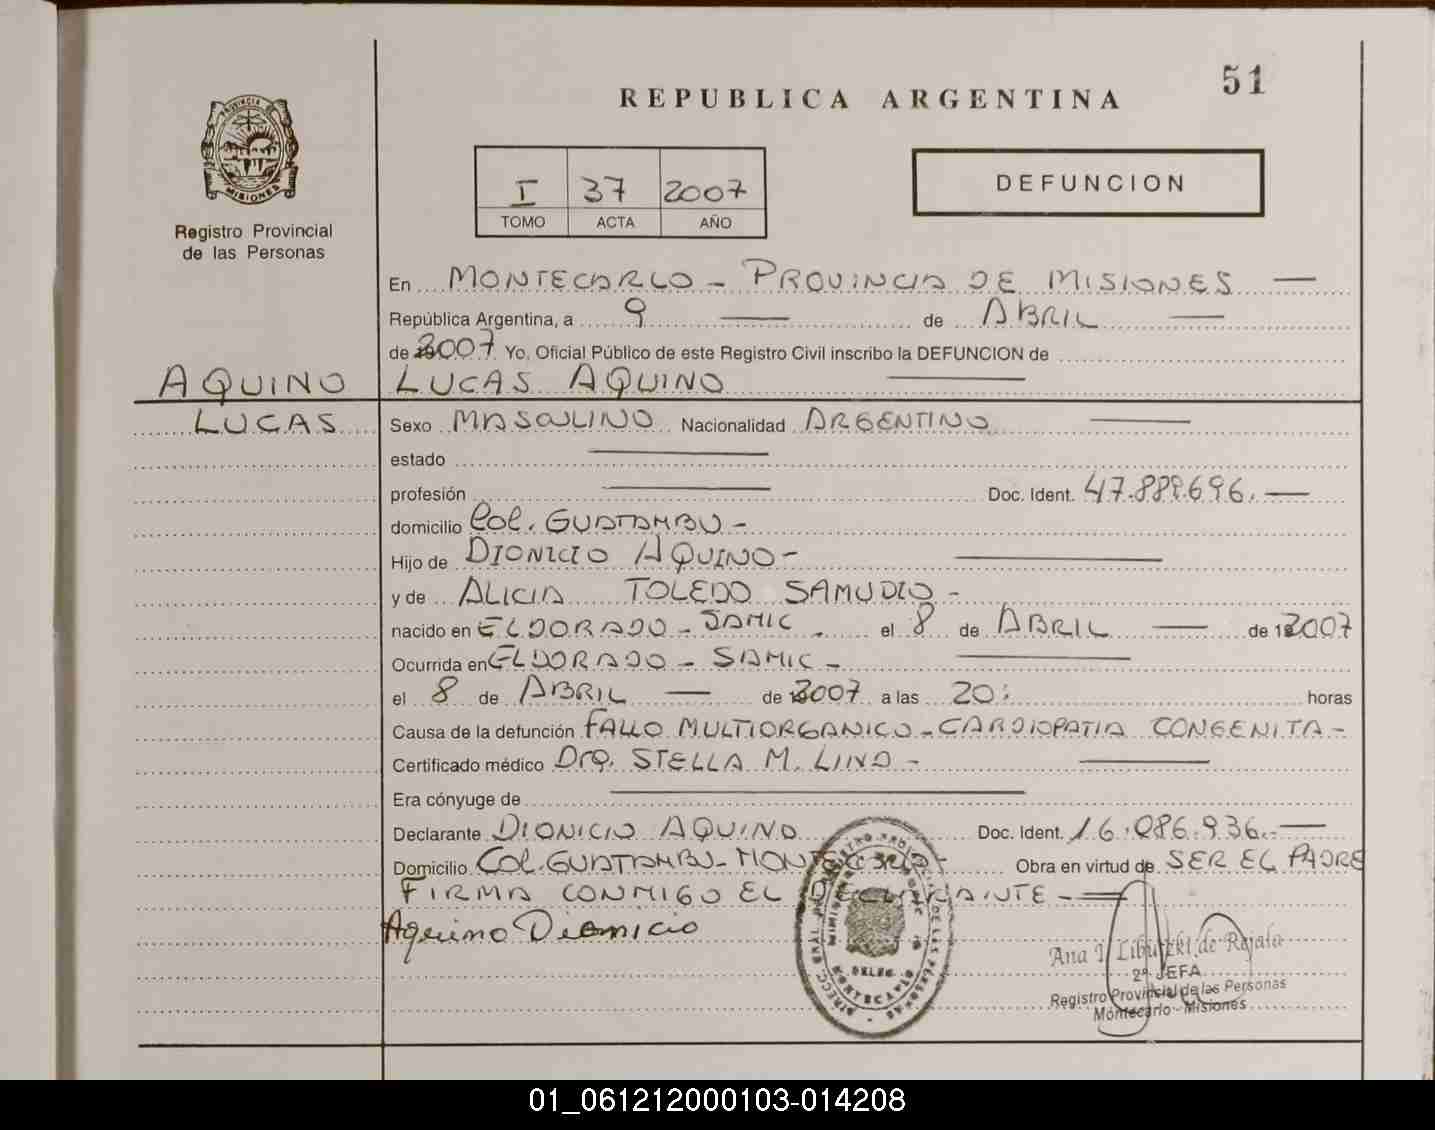 51
REPUBLICA ARGENTINA
PROVINCIA DE
MISIONES
Registro Provincial
de las Personas
I 37 2007
TOMO ACTA AÑO
DEFUNCION
En MONTECARLO - PROVINCIA DE MISIONES —
República Argentina, a 9 — de ABRIL —
de 2007 Yo, Oficial Público de este Registro Civil inscribo la DEFUNCION de
AQUINO LUCAS AQUINO —
LUCAS Sexo MASCULINO Nacionalidad ARGENTINO —
estado —
profesión — Doc. Ident. 47.889.696. —
domicilio Col. GUATAMBU -
Hijo de DIONICIO AQUINO - —
y de ALICIA TOLEDO SAMUDIO -
nacido en ELDORADO - SAMIC - el 8 de ABRIL — de 2007
Ocurrida en ELDORADO - SAMIC - —
el 8 de ABRIL — de 2007 a las 20: horas
Causa de la defunción FALLO MULTIORGANICO - CARDIOPATIA CONGENITA -
Certificado médico Dra. STELLA M. LINO - —
Era cónyuge de —
Declarante DIONICIO AQUINO Doc. Ident. 16.086.936. —
Domicilio COL. GUATAMBU - MONTECARLO Obra en virtud de SER EL PADRE
FIRMA CONMIGO EL DECLARANTE - —
Aquino Dionicio
DELEG.
MONTECARLO
DE LAS PERSONAS
Ana I. de Rejala
2º JEFA
Registro Provincial de las Personas
Montecarlo - Misiones
01_061212000103-014208